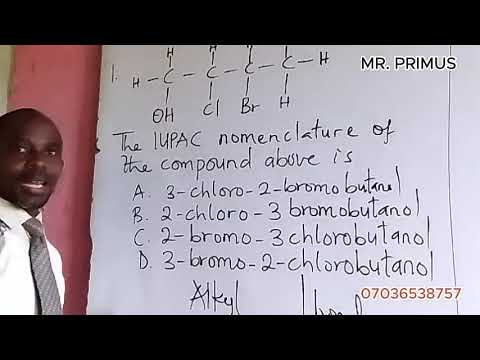 MR. PRIMUS
H H
1. H - C - C - C - C - H
OH Cl Br H
The IUPAC nomenclature of
the compound above is
A. 3-chloro-2-bromobutanol
B. 2-chloro-3 bromobutanol
C. 2-bromo-3 chlorobutanol
D. 3-bromo-2-chlorobutanol
Alkyl
07036538757